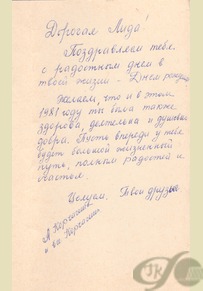 Дорогая Лида!
Поздравляем тебя
с радостным днем в
твоей жизни - Днем рожд
Желаем, что и в этом
1981 году ты была также
здорова, деятельна и душевно
добра. Пусть впереди у тебя
будет большой жизненный
путь, полный радостей и
счастья.
Целуем, Твои друзья